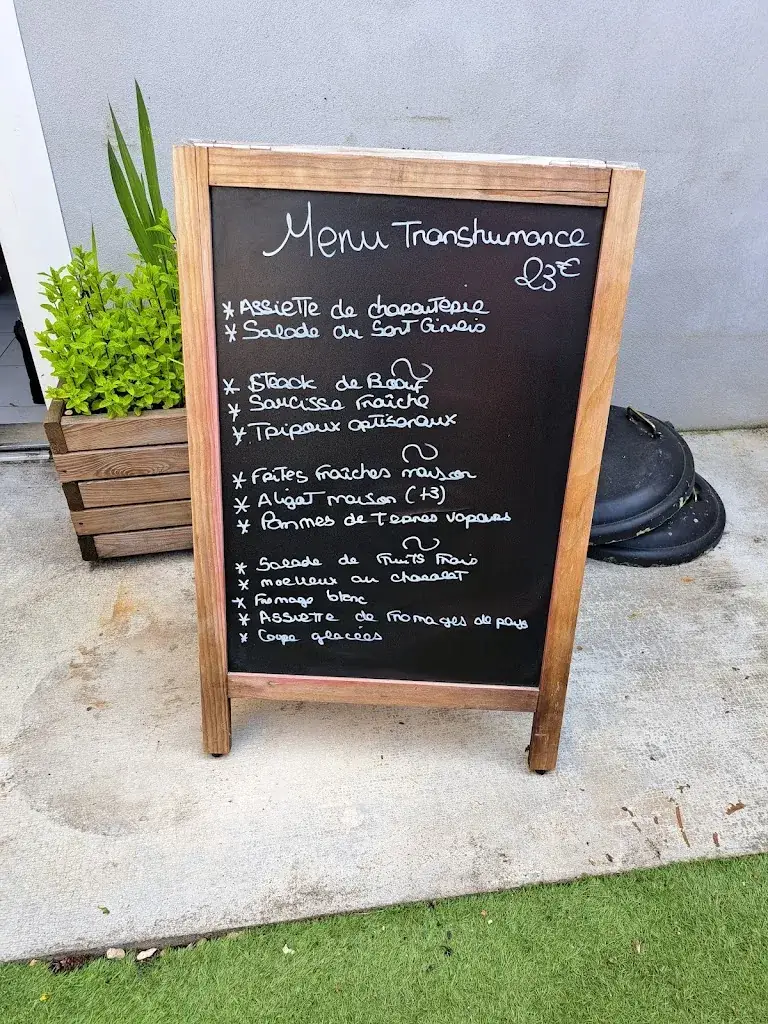 Menu Transhumance
23€
* Assiette de charcuterie
* Salade du
* Steack de Boeuf
* Saucisse Fraîche
* Tripoux artisanaux
* Frites Fraîches maison
* Aligot maison (+3)
* Pommes de Terres vapeurs
* Salade de Fruits Frais
* moelleux au chocolat
* Fromage blanc
* Assiette de Fromages de pays
* Coupe glacées